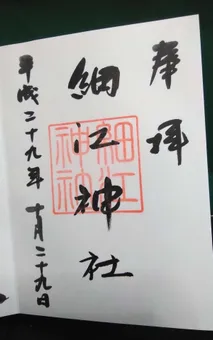 奉拝
細江神社
平成二十九年 十月二十九日
細江
神社